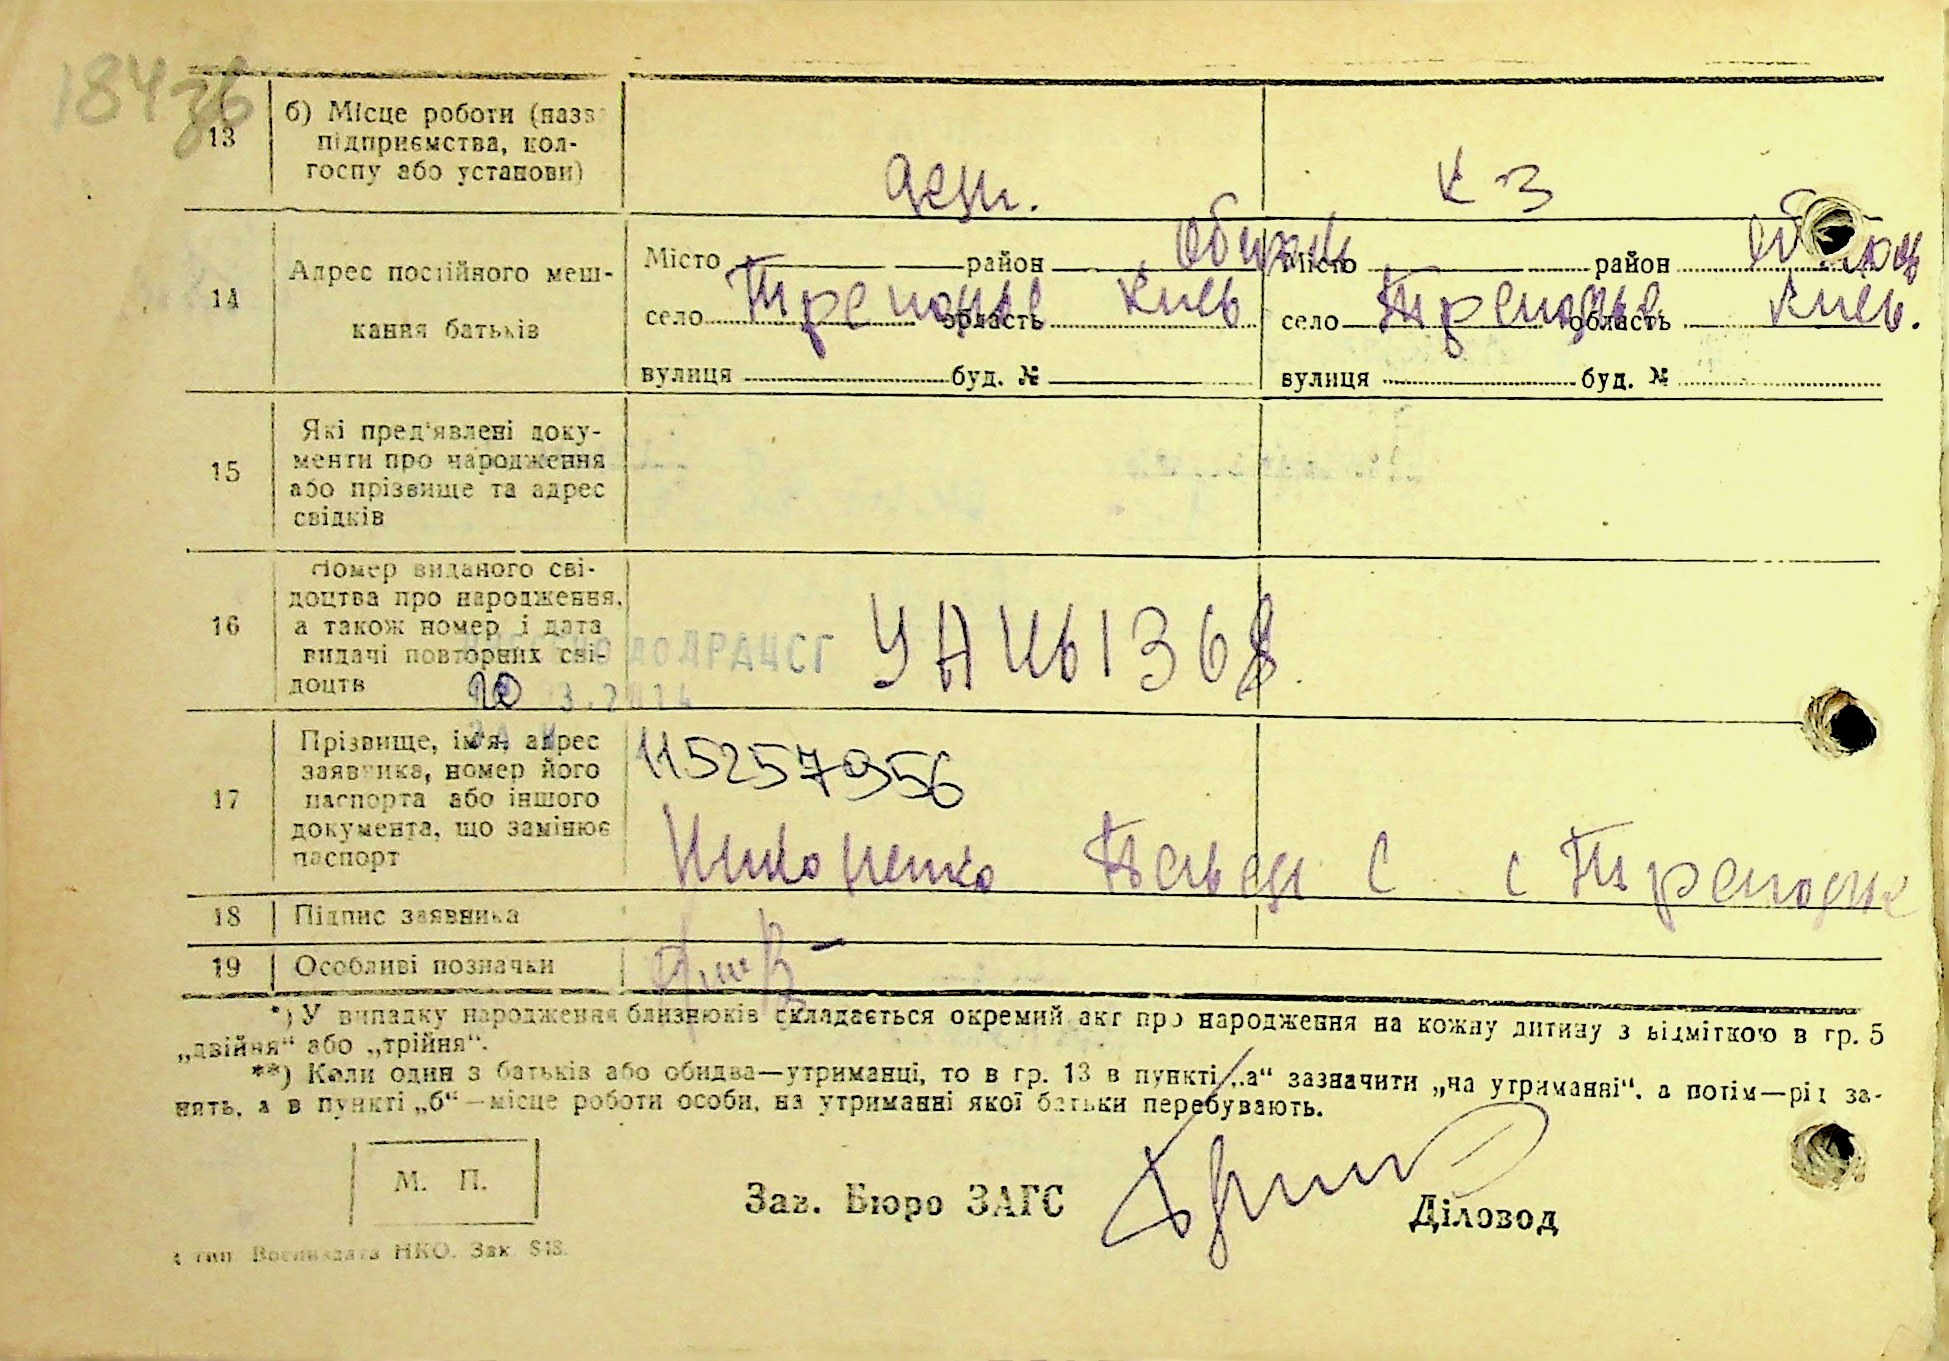 184зв
13 б) Місце роботи (назва
підприємства, кол-
госпу або установи)
К З
14 Адрес постійного меш-
кання батьків
Місто район Обухів Місто район
село Трепольє область Києв село Трепольє область Києв.
вулиця буд. № вулиця буд. №
15 Які пред'явлені доку-
менти про народження
або прізвище та адрес
свідків
16 Номер виданого сві-
доцтва про народження,
а також номер і дата
видачі повторних сві-
доцтв
ДРАЦСГ
УАЦЬ1368.
20
17 Прізвище, ім'я, адрес
заявника, номер його
паспорта або іншого
документа, що замінює
паспорт
1152577956
С с Треполье
18 Підпис заявника
19 Особливі позначки
*) У випадку народження близнюків складається окремий акт про народження на кожну дитину з відміткою в гр. 5
„двійня“ або „трійня“.
**) Коли один з батьків або обидва—утриманці, то в гр. 13 в пункті „а“ зазначити „на утриманні“, а потім—рід за-
нять, а в пункті „б“—місце роботи особи, на утриманні якої батьки перебувають.
М. П.
Зав. Бюро ЗАГС
Діловод
тип. Воениздата НКО. Зак. 818.